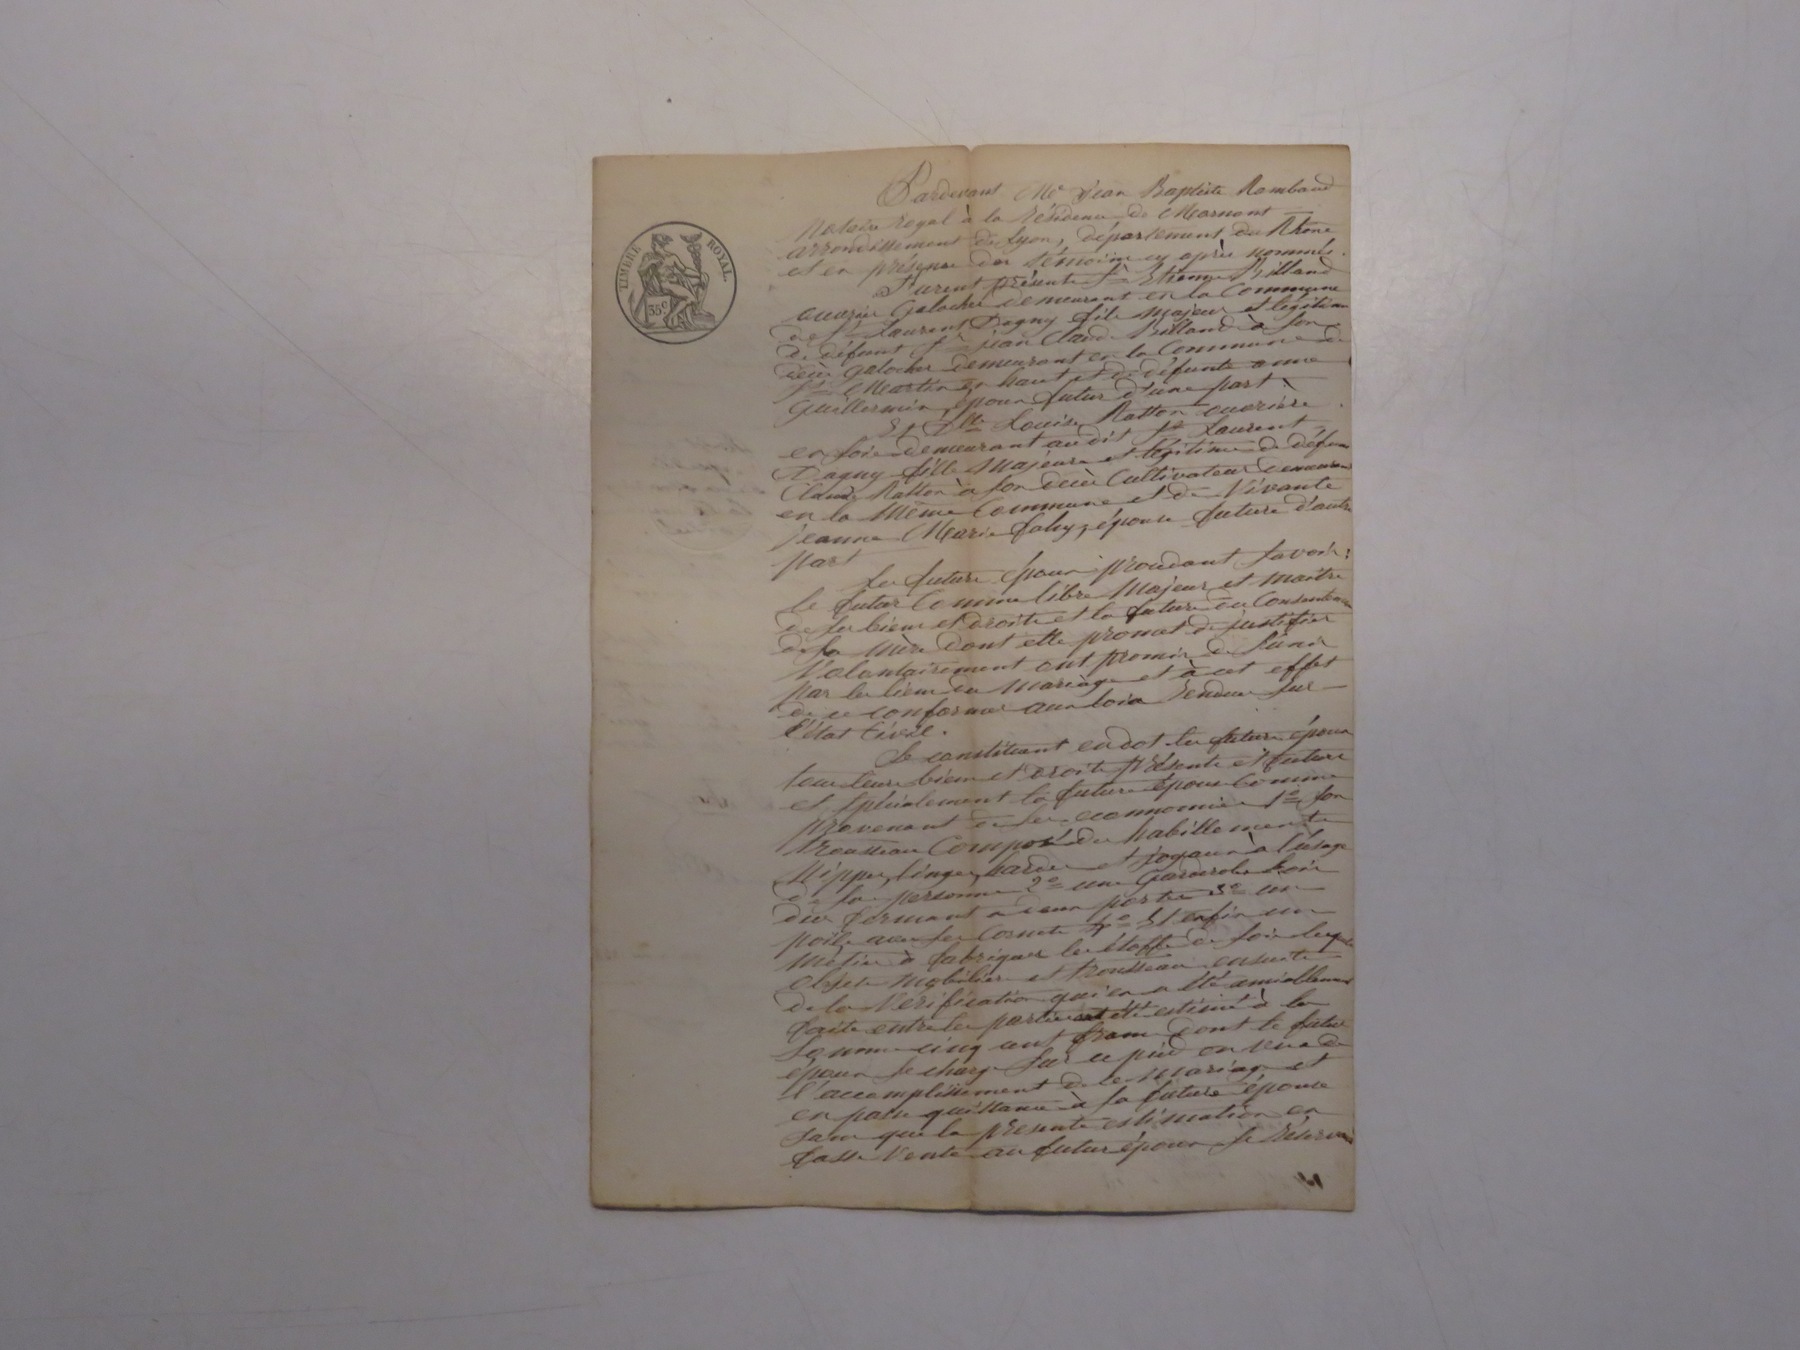 TIMBRE ROYAL
35 c.
Pardevant Me jean Baptiste Rambaud
Notaire Royal à la Résidence de Mornant
arrondissement de Lyon, département du Rhone
et en présence des témoins cy après nommés.
furent présents Sr Etienne Billand
ouvrier Galocher demeurant en la Commune
de St Laurent Dagny fils majeur et légitime
de défunt Sr jean Claude Billand à son
décès galocher demeurant en la Commune de
St Martin en haut et de défunte anne
Guillermin, époux futur d'une part
Et Dlle Louise Ratton ouvrière
en soie demeurant au dit St Laurent
Dagny fille Majeure et légitime de défunt
Claude Ratton à son décès Cultivateur demeurant
en la Même Commune et de Vivante
jeanne Marie épouse future d'autre
part
Les futurs époux procédant savoir:
le futur Comme libre Majeur et maitre
de ses biens et droits et la future du Consentement
de sa mère dont elle promet de justifier
Volontairement ont promis de s'unir
par les liens du Mariage et à cet effet
de se conformer aux lois rendues sur
l'état Civil.
Se constituent en dot les futurs époux
tous leurs biens et droits présents et futurs
et spécialement la future épouse Comme
provenant de ses economies 1° son
trousseau Composé des habillements
Nippes, linges, hardes et joyaux à l'usage
de sa personne 2° une Garderobe bois
dur fermant à deux portes 3° un
poile avec ses Cornets 4° Et enfin un
métier à fabriquer les étoffes de soie lesquels
objets mobiliers et trousseau ensuite
de la Vérification qui en a été amiablement
faite entre les parties ont été estimés à la
somme cinq cent francs dont le futur
époux se charge sur ce pied en vue de
l'accomplissement de ce Mariage et
en passe quittance à sa future épouse
sans que la présente estimation en
fasse Vente au futur époux se réservant